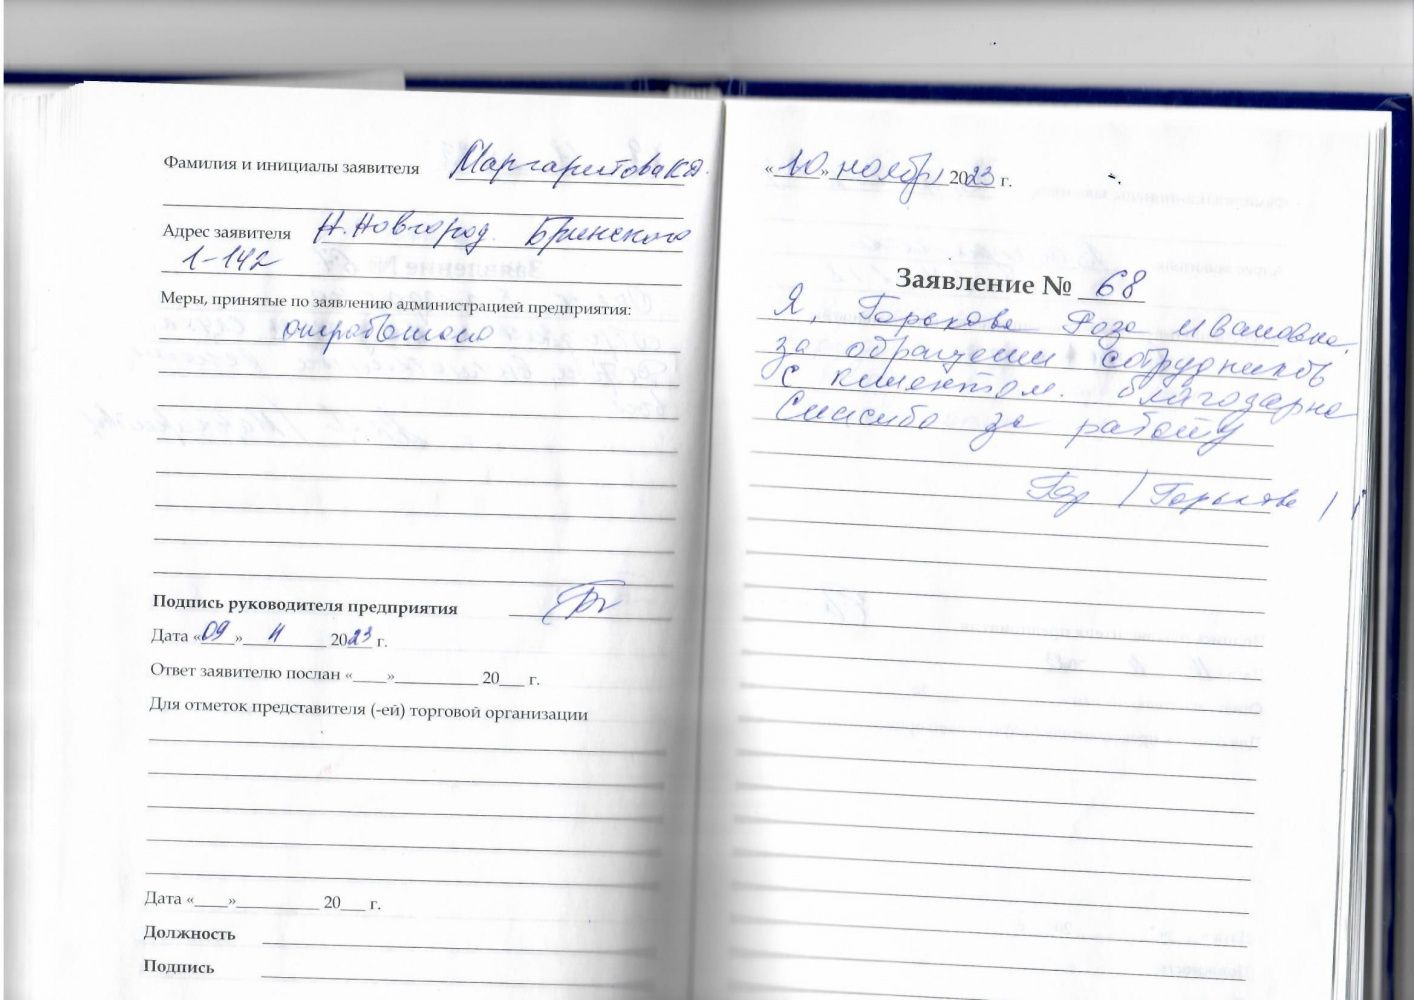 Фамилия и инициалы заявителя Маргаритова К.Д.
Адрес заявителя Н.Новгород. Бринского
1-142
Меры, принятые по заявлению администрацией предприятия:
отработано
Подпись руководителя предприятия
Дата «09» 11 2023 г.
Ответ заявителю послан «____»__________ 20___ г.
Для отметок представителя (-ей) торговой организации
Дата «____»__________ 20___ г.
Должность
Подпись
«10» ноября 2023 г.
Заявление № 68
Я, Горькова Роза Ивановна,
за обращении сотрудников
с клиентом. благодарна
Спасибо за работу
/ Горькова /